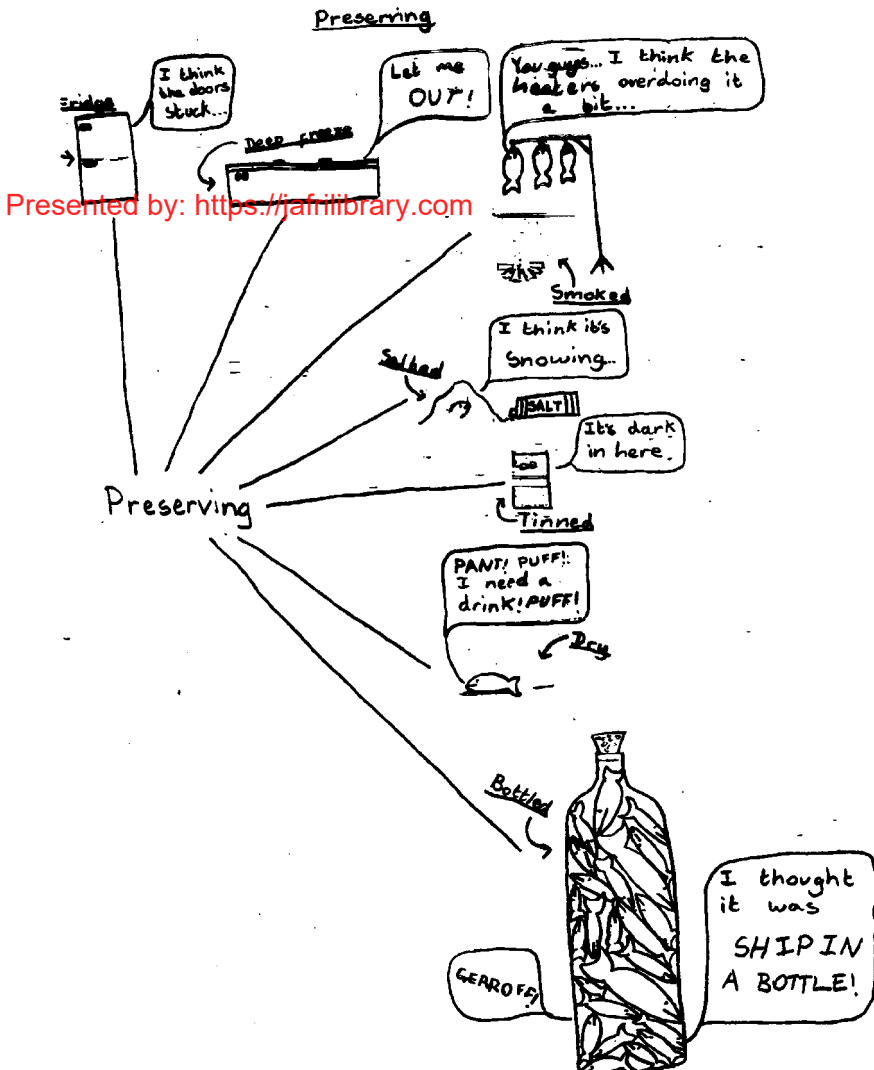 Preserving
I think
the doors
stuck...
Fridge
Let me
OUT!
Deep freeze
You guys... I think the
heaters overdoing it
a bit...
Presented by: https://jafrilibrary.com
Smoked
I think it's
Snowing...
Salted
SALT
It's dark
in here.
Tinned
Preserving
PANT! PUFF!
I need a
drink! PUFF!
Dry
Bottled
I thought
it was
SHIP IN
A BOTTLE!
GERROFF!